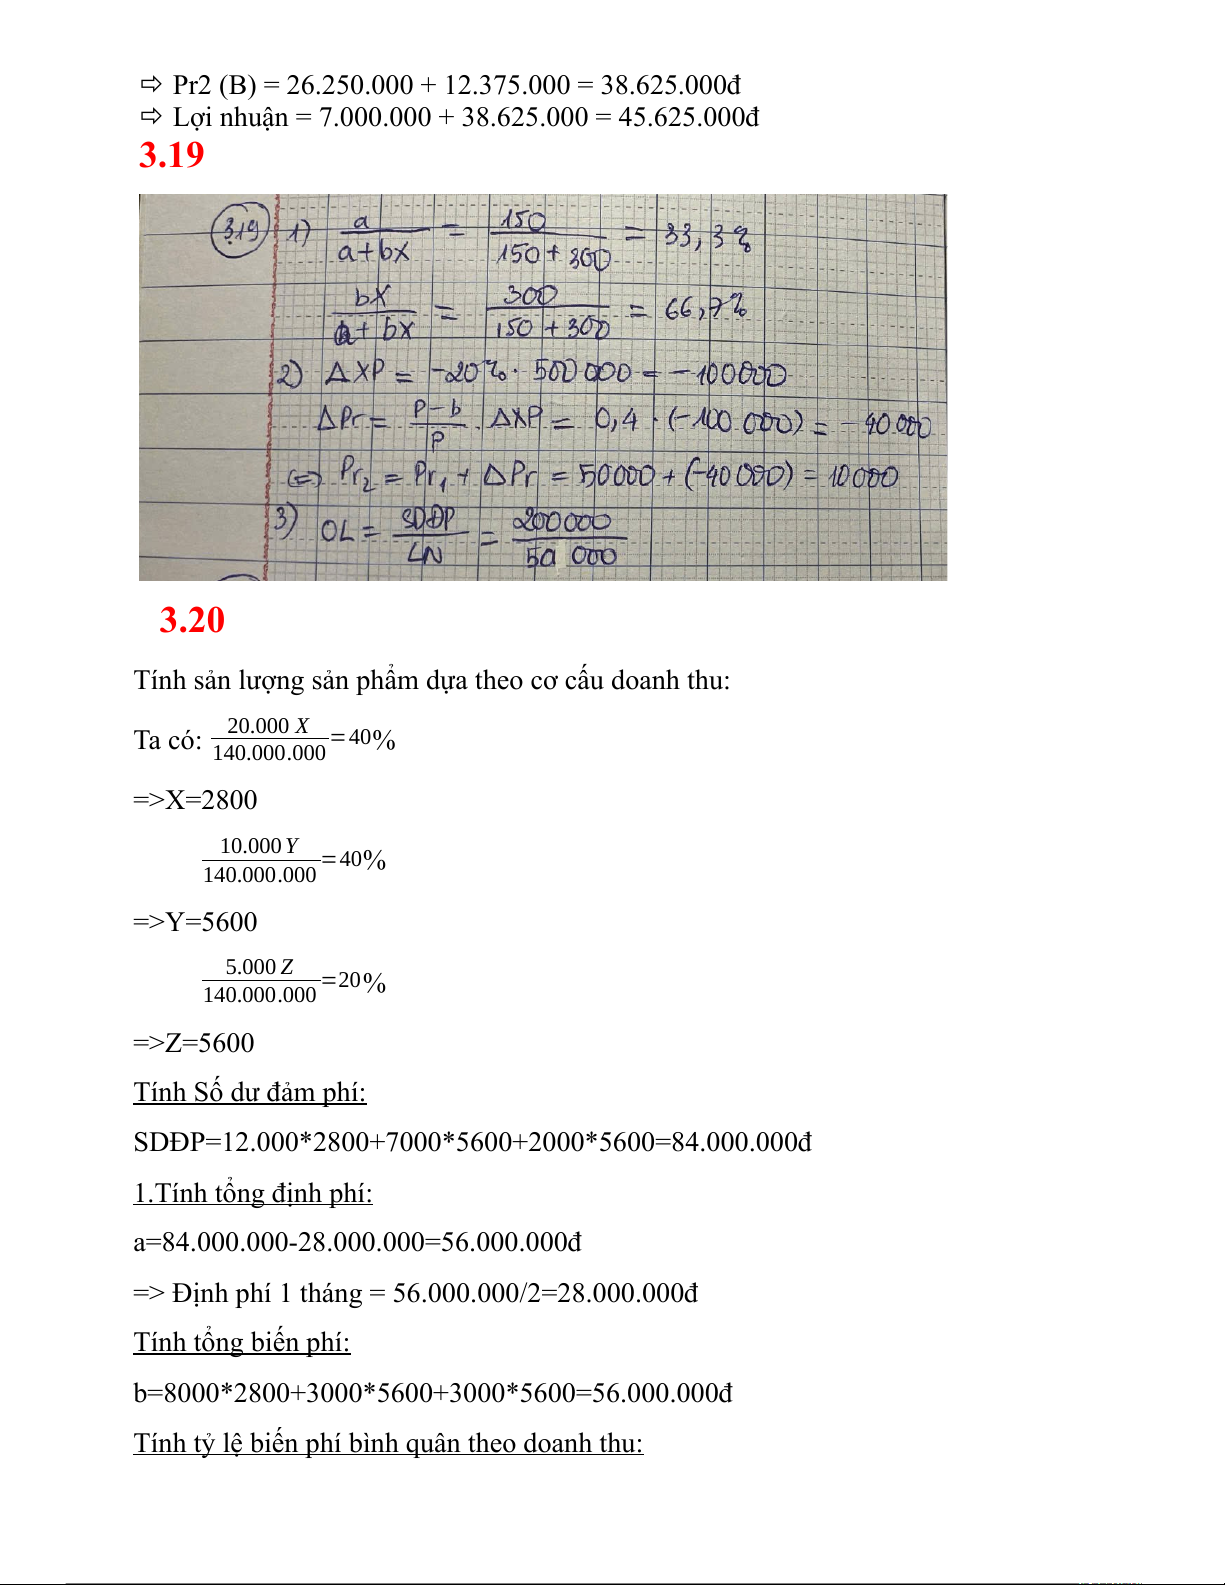 ⇨ Pr2 (B) = 26.250.000 + 12.375.000 = 38.625.000đ
⇨ Lợi nhuận = 7.000.000 + 38.625.000 = 45.625.000đ
3.19
3.19 1) a / a+bx = 150 / 150+300 = 33,3%
bx / a+bx = 300 / 150+300 = 66,7%
2) ΔXP = -20% . 500 000 = -100000
ΔPr = p-b / p . ΔXP = 0,4 . (-100.000) = -40.000
(=) Pr2 = Pr1 + ΔPr = 50000 + (-40000) = 10000
3) OL = SDĐP / LN = 200000 / 50 000
3.20
Tính sản lượng sản phẩm dựa theo cơ cấu doanh thu:
Ta có: 20.000 X / 140.000.000 = 40%
=>X=2800
10.000 Y / 140.000.000 = 40%
=>Y=5600
5.000 Z / 140.000.000 = 20%
=>Z=5600
Tính Số dư đảm phí:
SDĐP=12.000*2800+7000*5600+2000*5600=84.000.000đ
1.Tính tổng định phí:
a=84.000.000-28.000.000=56.000.000đ
=> Định phí 1 tháng = 56.000.000/2=28.000.000đ
Tính tổng biến phí:
b=8000*2800+3000*5600+3000*5600=56.000.000đ
Tính tỷ lệ biến phí bình quân theo doanh thu: